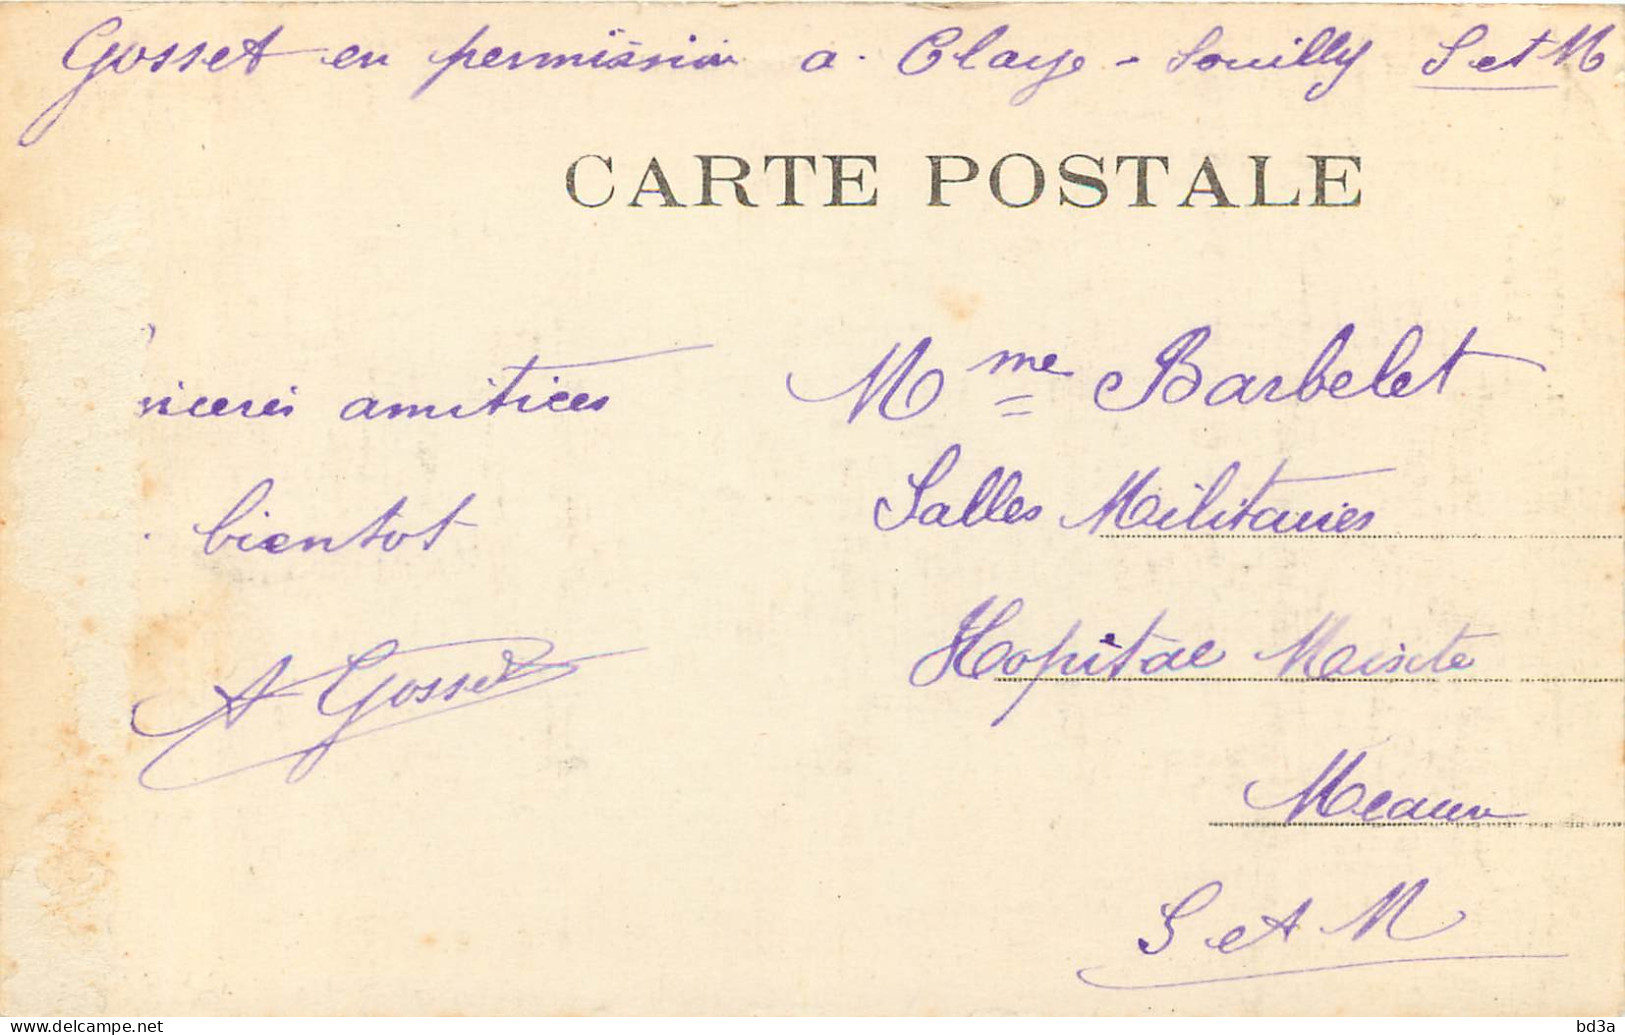 Gosset en permission a. Claye-Souilly S et M
CARTE POSTALE
amitices
bientot
A Gosset
Mme Barbelet
Salles Militaires
Hopital Mixte
Meaux
S et M
www.delcampe.net
bd3a